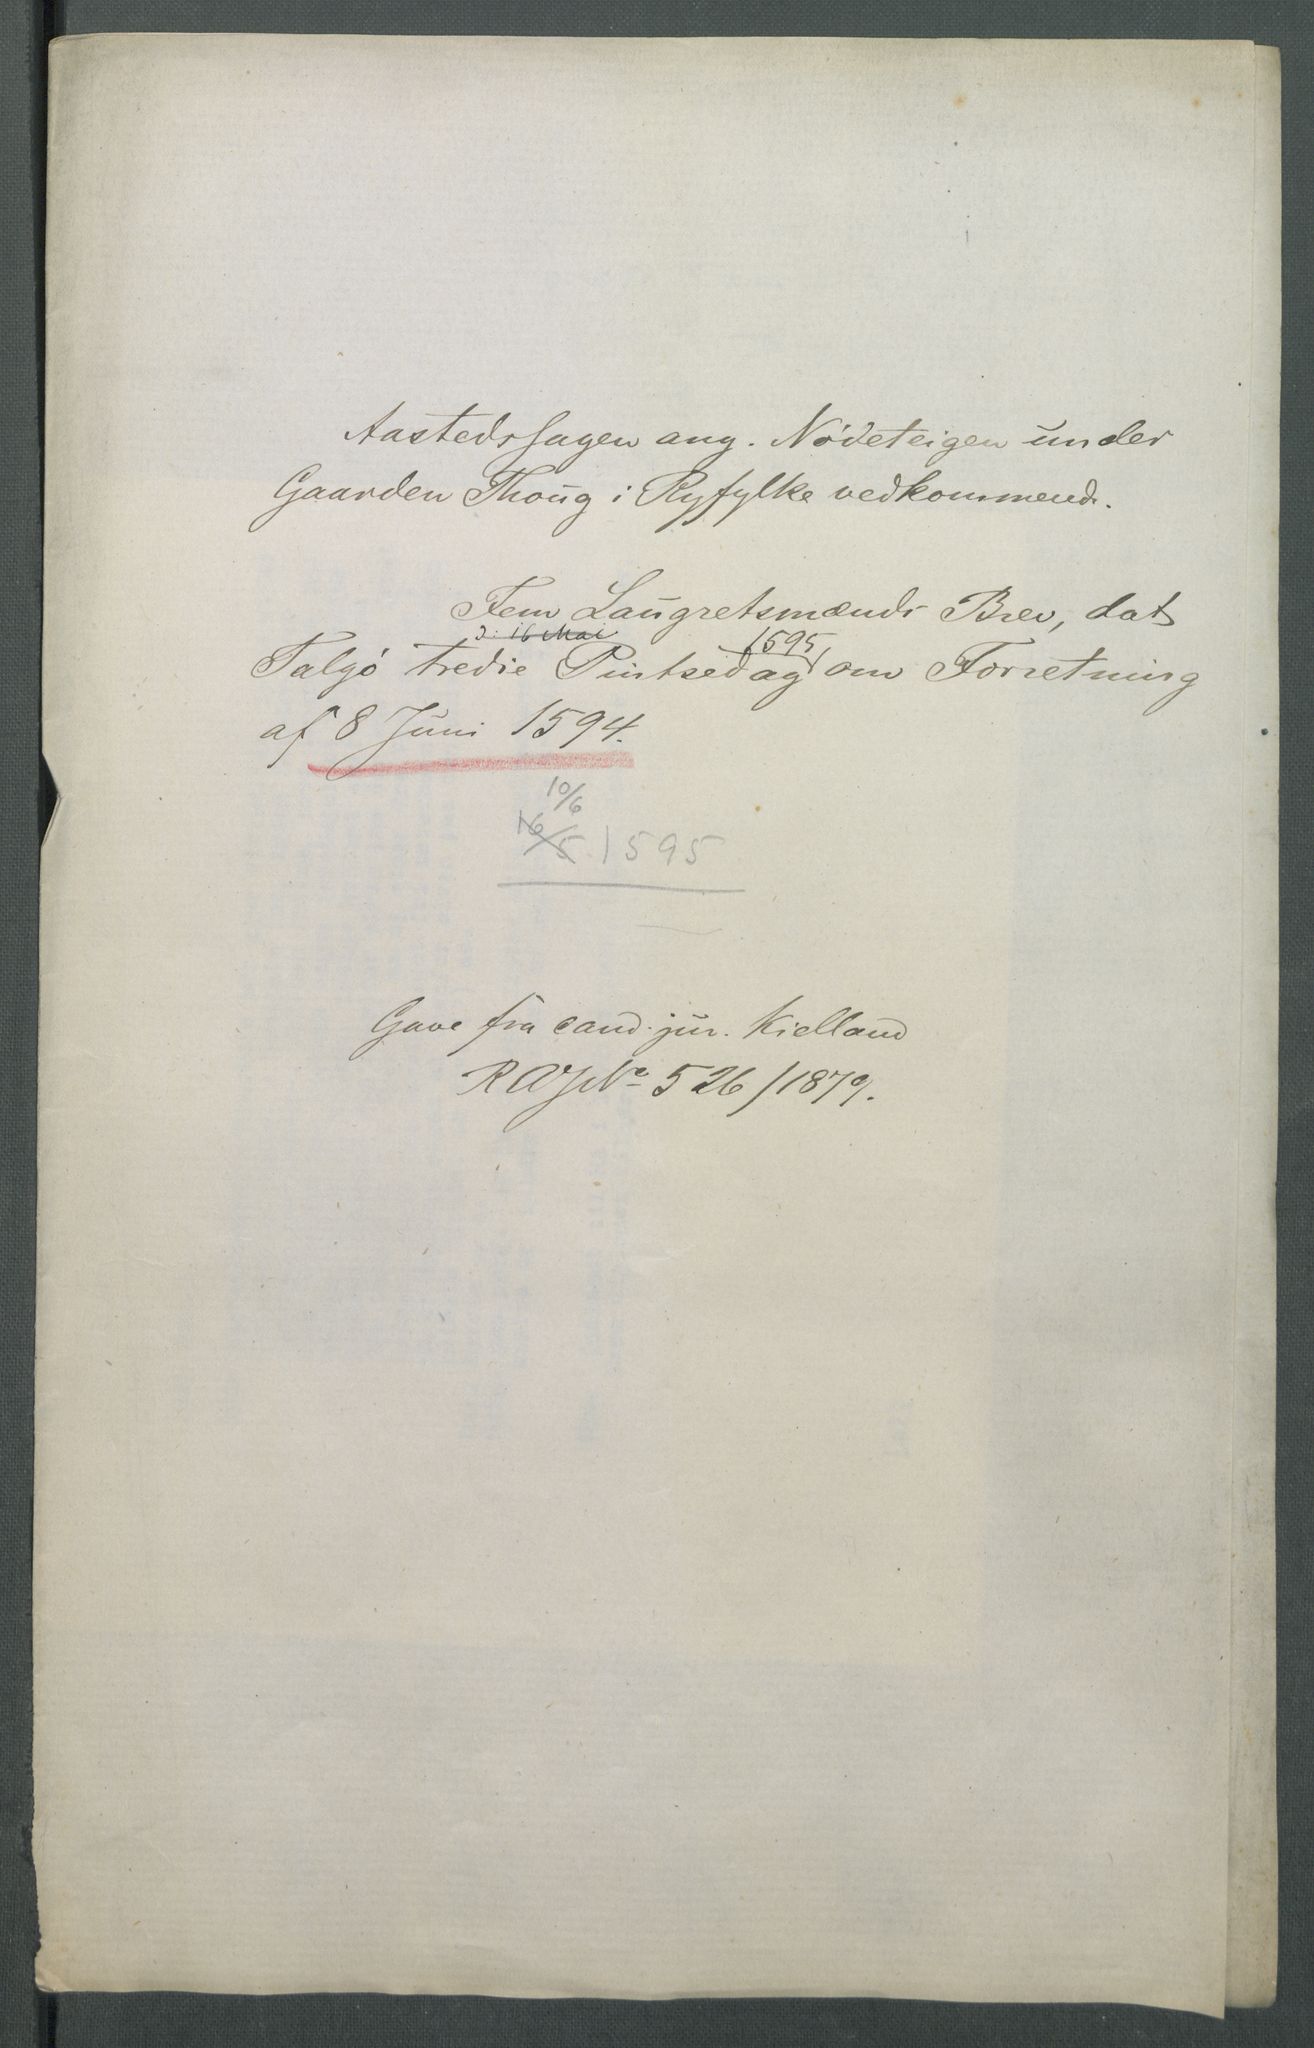 Aastedssagen ang. Nödeteigen under
Gaarden Thoug i Ryfylke vedkommend.
Fem Laugretsmænds Brev, dat
ɔ: 16 Mai 1595
Talgö tredie Pintsedag om Forretning
af 8 Juni 1594.
10/6
16/5 1595
Gave fra cand. jur. Kielland
RAJNo 526/1879.